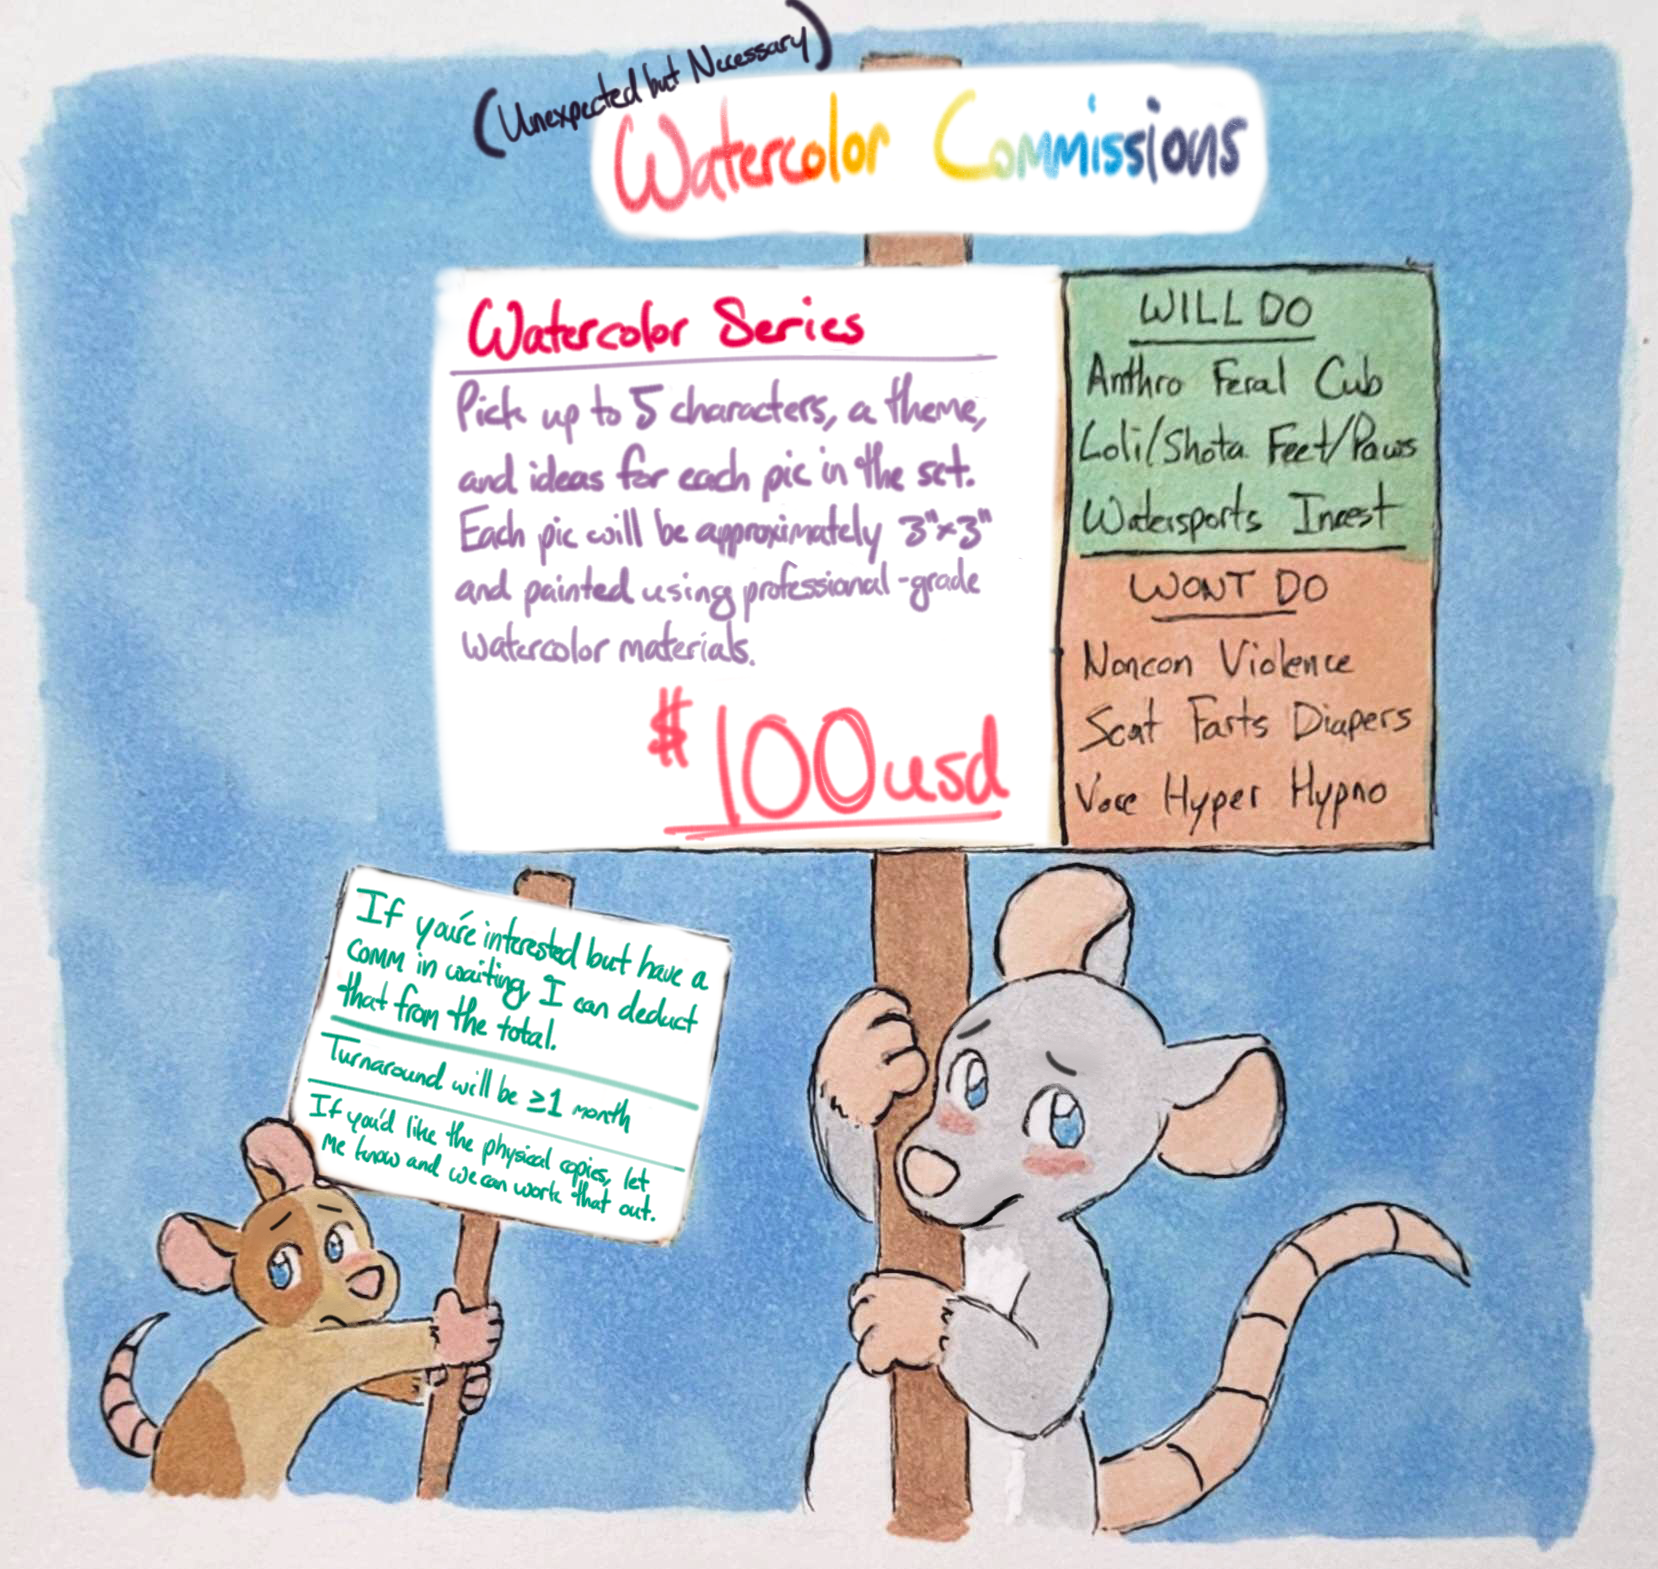 (Unexpected but Necessary)
Watercolor Commissions
Watercolor Series
Pick up to 5 characters, a theme,
and ideas for each pic in the set.
Each pic will be approximately 3"x3"
and painted using professional-grade
watercolor materials.
$100usd
WILL DO
Anthro Feral Cub
Loli/Shota Feet/Paws
Watersports Incest
WONT DO
Noncon Violence
Scat Farts Diapers
Vore Hyper Hypno
If you're interested but have a
comm in waiting, I can deduct
that from the total.
Turnaround will be ≥1 month
If you'd like the physical copies, let
me know and we can work that out.